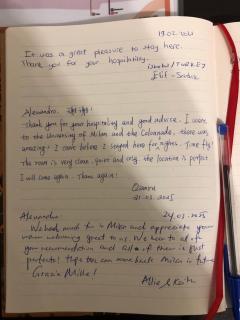 19.02.2025
It was a great pleasure to stay here.
Thank you for your hospitality.
Istanbul / TURKEY
Elif - Sadık
Alexandro
Thank you for your hospitality and good advise. I went
to the University of Milan and the Colonnade, there was
amazing! I can't believe I stayed here for nights. Time fly!
The room is very clean, quiet and cozy. the location is perfect
I will come again. Thanks again!
21.03.2025
Alexandro
24.03.2025
We had much fun in Milan and appreciate your
warm welcoming greet to us. We went to all of
your recommendation and all of them is just
perfect! Hope to come back Milan in future
Grazie Mille!
Allie & Keith